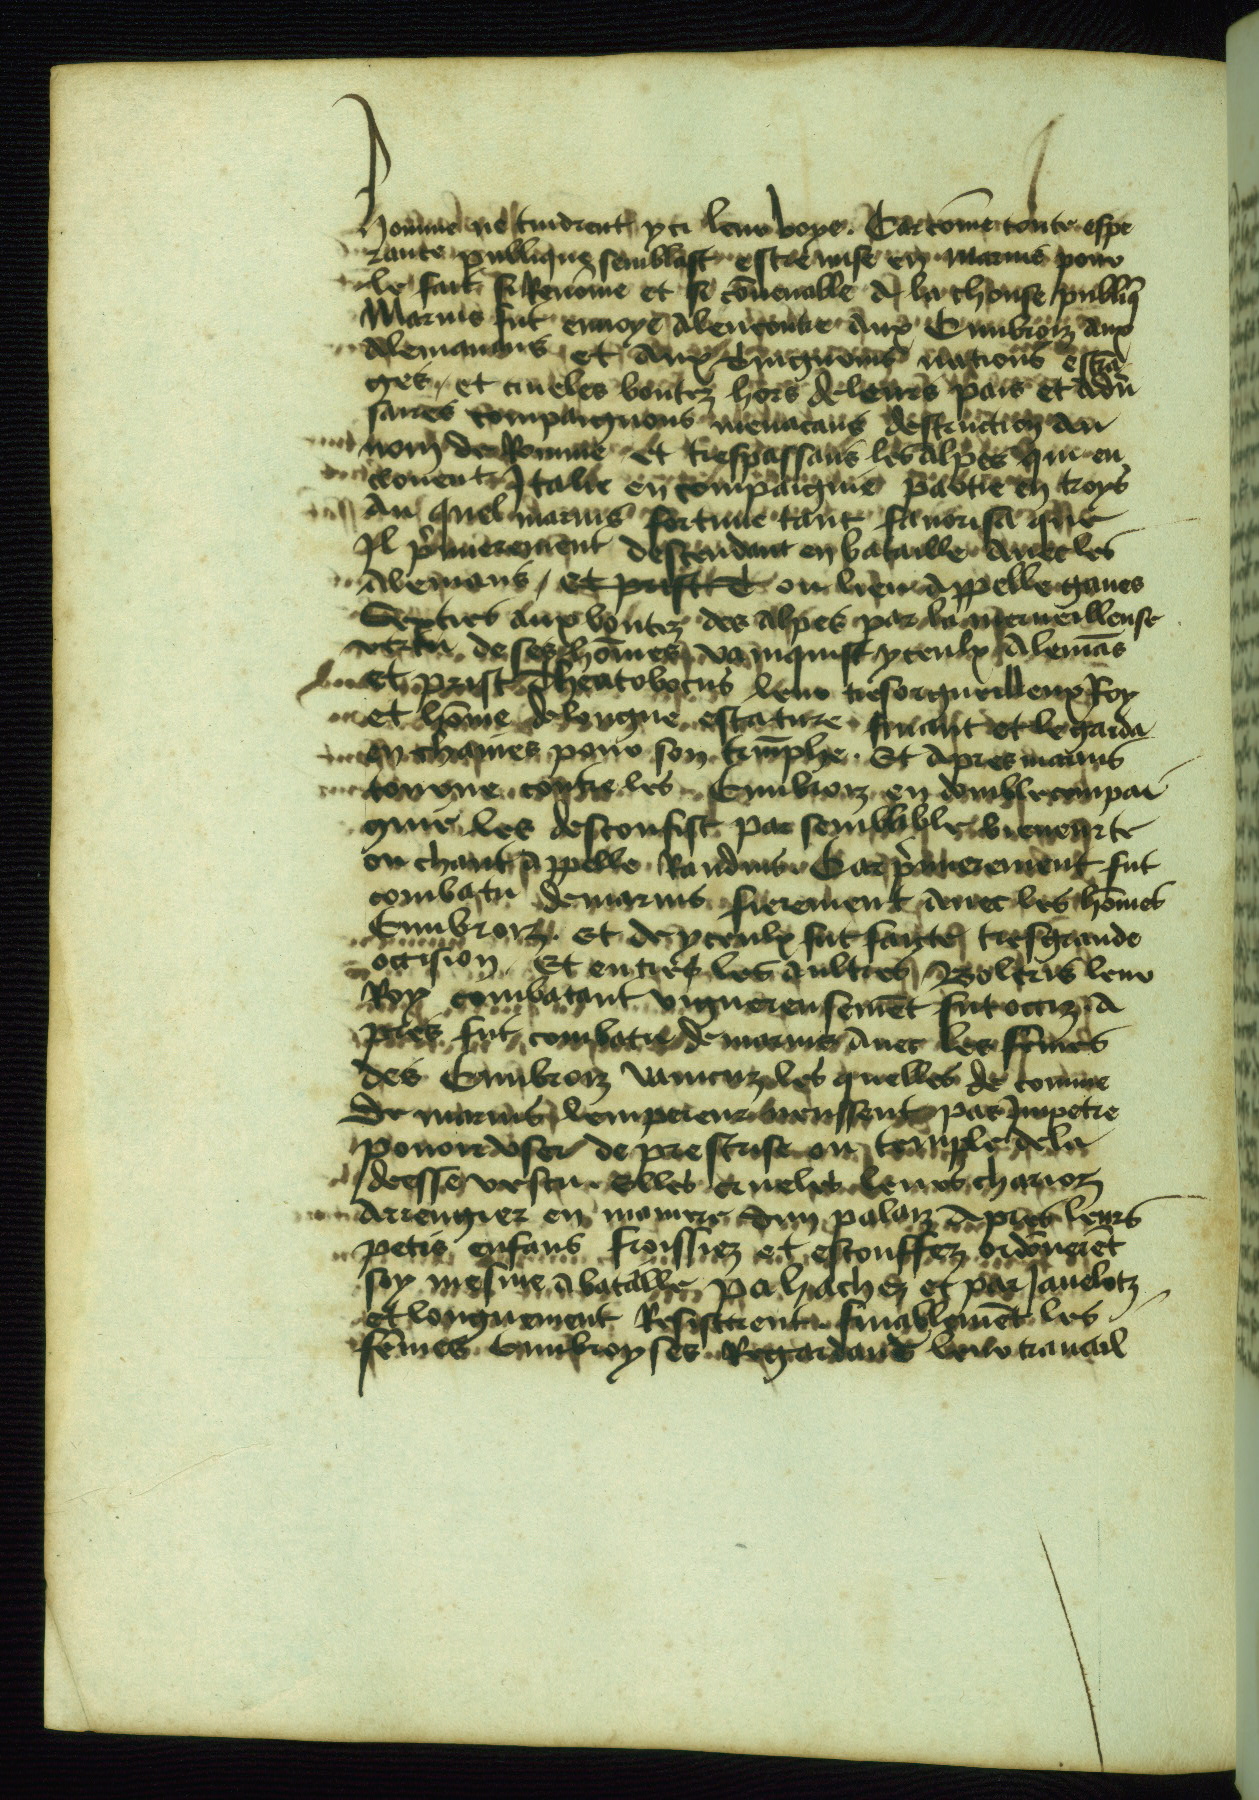 homme ne tindrent yci leur voye. Car cōme toute espe
rance publique semblast estre mise en marius pour
le fait si Renōme et si cōuenable a la chouse publiq̄
Marius fut enuoye alencontre aux Cimbroiz aux
alemanans et aux tuignonis nations estrā
ges / et cruelles boutez hors de leurs pais et adu̅
saires compaignons menacans destruction du
nom de Romme et trespassans les alpes qui en
clouent Italie en compaignie partie en troys
Au quel marius fortune tant fauorisa que
Il p̄mierement descendant en bataille auec les
alemans / et prist T ou lieu appelle gaues
Sexties aux boutez des alpes par la merueilleuse
vertu de ses hōmes vainquist yceulx alemās
et prist Theutobocus leur tresorgueilleux Roy
et hōme de longue estature fuiant et le garda
en chaines pour son triūphe. Et apres marius
tourne contre les Cimbroiz en double compai
gnie les desconfist par semblable bieneurte
ou chant appelle Randius. Car p̄mierement fut
combatu de marius fierement auec les hōmes
Cimbroiz. et de yceulx fut faicte tresgrande
occision. Et entre les aultres Boleris leur
Roy combatant viguereusemēt fut occiz a
pres fut combatu de marius auec les fēmes
des Cimbroiz vaincuz les quelles de comme
de marius lempereur neussent pas Impetre
pouoir user de prestrise ou temple de la
deesse vesta. Elles cruelles leurs charioz
arrengier en maniere dun palaiz apres leurs
petis enfans froissiez et estouffez ordōnerēt
soy mesme a bataille pa haches et par Jauelotz
et longuement Resisterent. finablemēt les
fēmes Cimbroyses Regardans leur trauail